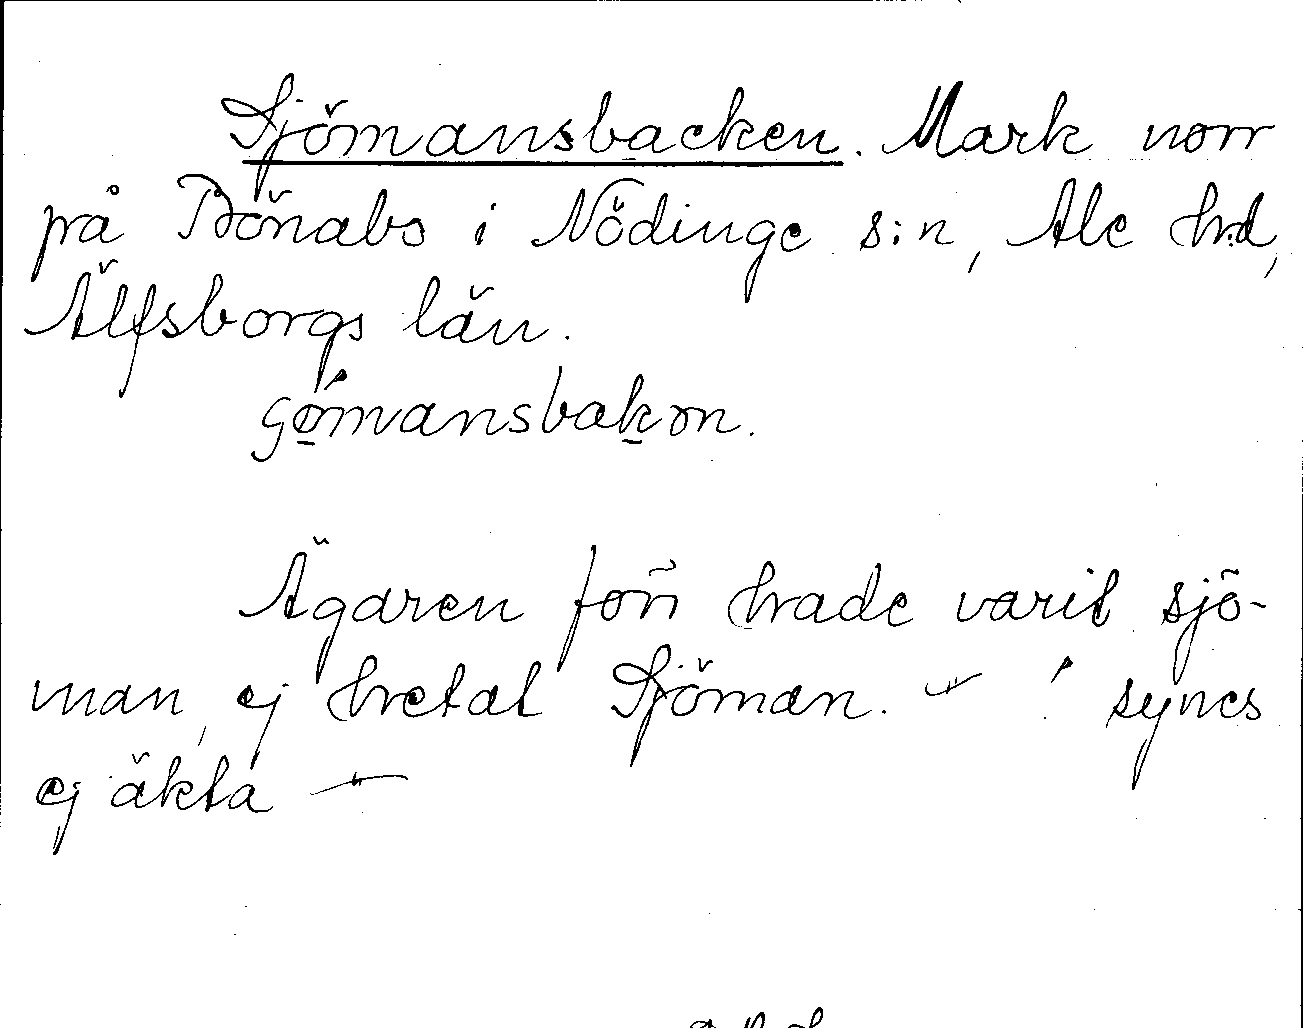 Sjömansbacken. Mark norr
på Bönabs i Nödinge s:n, Ale hd,
Älfsborgs län.
Ägaren förr hade varit sjö-
man, ej hetat Sjöman. - ' synes
ej äkta -